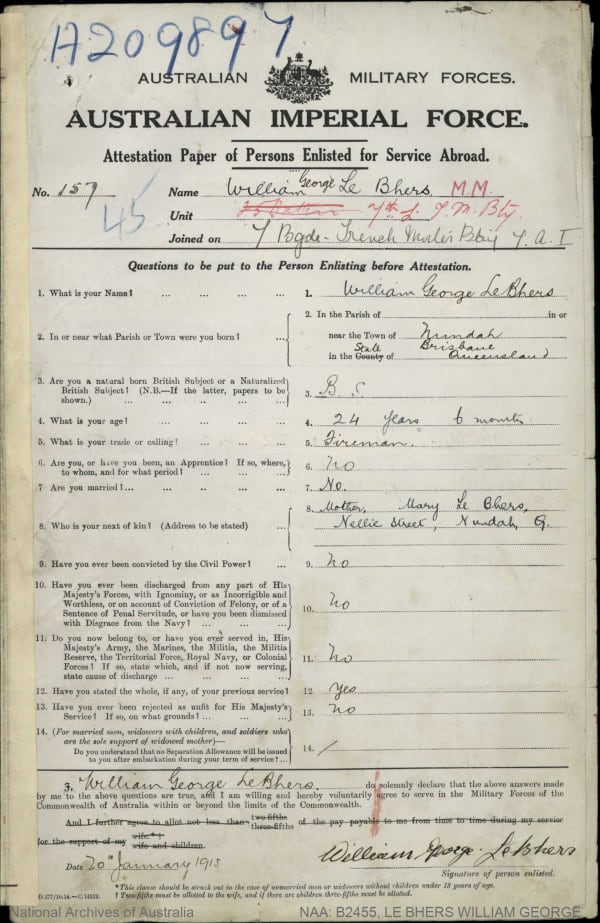 A209897
AUSTRALIAN MILITARY FORCES.
AUSTRALIAN IMPERIAL FORCE.
Attestation Paper of Persons Enlisted for Service Abroad.
No. 157 Name William George Le Bhers M.M.
45 Unit 7th L. T. M. Bty
Joined on 7 Bgde - Trench Morter Btty F. A. I
Questions to be put to the Person Enlisting before Attestation.
1. What is your Name? ... ... ... ... 1. William George LeBhers
2. In or near what Parish or Town were you born? ... 2. In the Parish of in or
near the Town of Nundah
State Brisbane
in the County of Queensland
3. Are you a natural born British Subject or a Naturalized
British Subject? (N.B.—If the latter, papers to be
shown.) ... ... ... ... 3. B. S.
4. What is your age? ... ... ... 4. 24 years 6 months
5. What is your trade or calling? ... ... ... 5. Fireman.
6. Are you, or have you been, an Apprentice? If so, where,
to whom, and for what period? ... ... ... 6. No
7 Are you married?... ... ... ... ... 7. No.
8. Who is your next of kin? (Address to be stated) ... 8. Mother, Mary Le Bhers,
Nellie Street, Nundah, Q.
9. Have you ever been convicted by the Civil Power? ... 9. No
10. Have you ever been discharged from any part of His
Majesty's Forces, with Ignominy, or as Incorrigible and
Worthless, or on account of Conviction of Felony, or of a
Sentence of Penal Servitude, or have you been dismissed
with Disgrace from the Navy? ... ... ... 10. No
11. Do you now belong to, or have you ever served in, His
Majesty's Army, the Marines, the Militia, the Militia
Reserve, the Territorial Force, Royal Navy, or Colonial
Forces? If so, state which, and if not now serving,
state cause of discharge ... ... ... 11. No
12. Have you stated the whole, if any, of your previous service? 12. Yes
13. Have you ever been rejected as unfit for His Majesty's
Service? If so, on what grounds? ... ... ... 13. No
14. (For married men, widowers with children, and soldiers who
are the sole support of widowed mother)—
Do you understand that no Separation Allowance will be issued
to you after embarkation during your term of service? ... 14. /
I, William George LeBhers, do solemnly declare that the above answers made
by me to the above questions are true, and I am willing and hereby voluntarily agree to serve in the Military Forces of the
Commonwealth of Australia within or beyond the limits of the Commonwealth.
And I further agree to allot not less than two-fifths three-fifths of the pay payable to me from time to time during my service
for the support of my wife.*† wife and children.
Date 20th January 1915 William George LeBhers
Signature of person enlisted.
D.377/10.14.—C.14929. *This clause should be struck out in the case of unmarried men or widowers without children under 18 years of age.
† Two-fifths must be allotted to the wife, and if there are children three-fifths must be allotted.
National Archives of Australia NAA: B2455, LE BHERS WILLIAM GEORGE